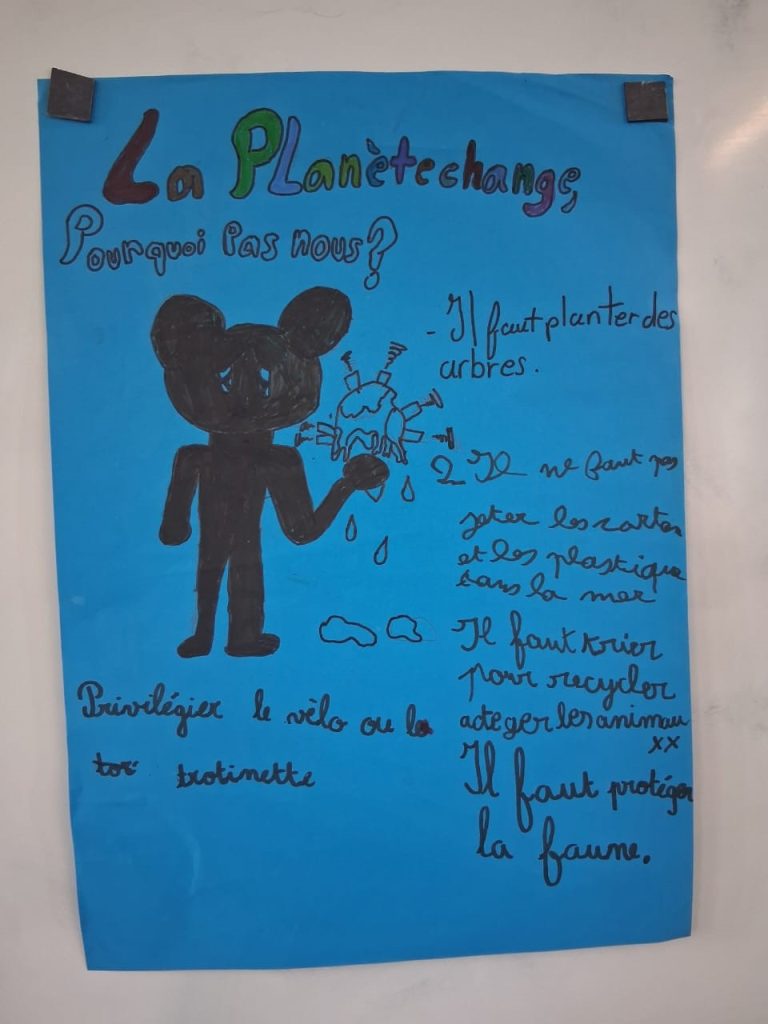 La Planète change,
Pourquoi Pas nous?
- Il faut planter des
arbres.
2 Il ne faut pas
jeter les cartes
et les plastique
dans la mer
Il faut trier
pour recycler
les animau
xx
Il faut protéger
la faune.
Privilégier le vèlo ou la
tot trotinette